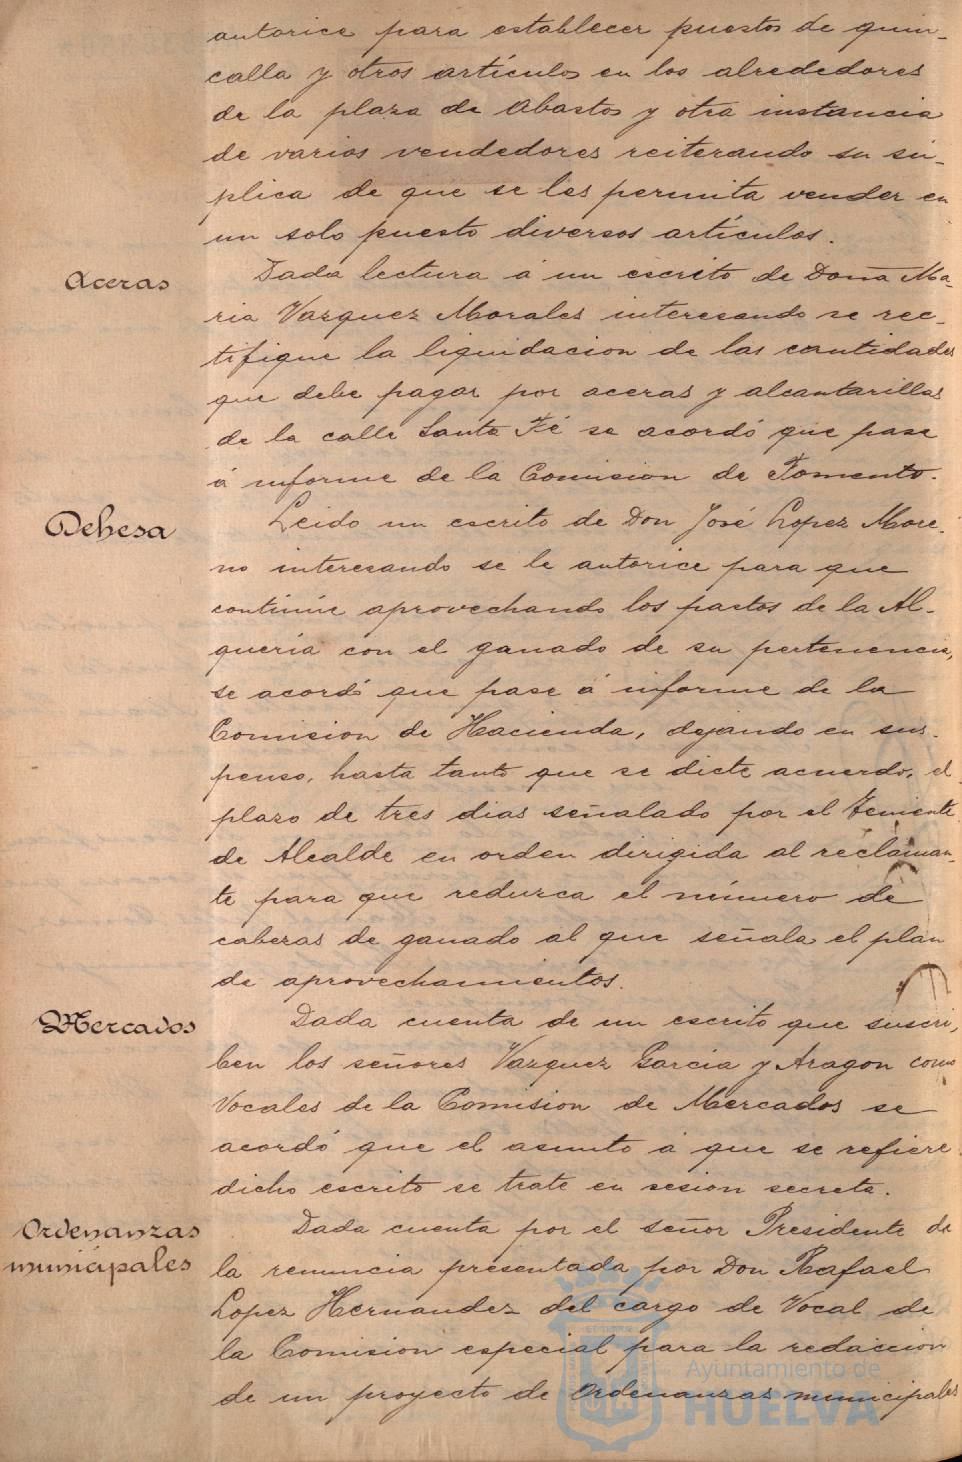 autorice para establecer puestos de quin-
calla y otros artículos en los alrededores
de la plaza de Abastos y otra instancia
de varios vendedores reiterando su sú-
plica de que se les permita vender en
un solo puesto diversos artículos.
Aceras
Dada lectura á un escrito de Doña Ma-
ria Vazquez Morales interesando se rec-
tifique la liquidacion de las cantidades
que debe pagar por aceras y alcantarillas
de la calle Santa Fé se acordó que pase
á informe de la Comision de Fomento.
Dehesa
Leido un escrito de Don José Lopez More-
no interesando se le autorice para que
continúe aprovechando los pastos de la Al-
quería con el ganado de su pertenencia,
se acordó que pase á informe de la
Comision de Hacienda, dejando en sus-
penso, hasta tanto que se dicte acuerdo, el
plazo de tres dias señalado por el Teniente
de Alcalde en orden dirigida al reclaman-
te para que reduzca el número de
cabezas de ganado al que señala el plan
de aprovechamientos.
Mercados
Dada cuenta de un escrito que suscri-
ben los señores Vazquez Garcia y Aragon como
Vocales de la Comision de Mercados se
acordó que el asunto á que se refiere
dicho escrito se trate en sesion secreta.
Ordenanzas
municipales
Dada cuenta por el señor Presidente de
la renuncia presentada por Don Rafael
Lopez Hernandez del cargo de Vocal de
la Comision especial para la redaccion
de un proyecto de Ordenanzas municipales
Ayuntamiento de
HUELVA